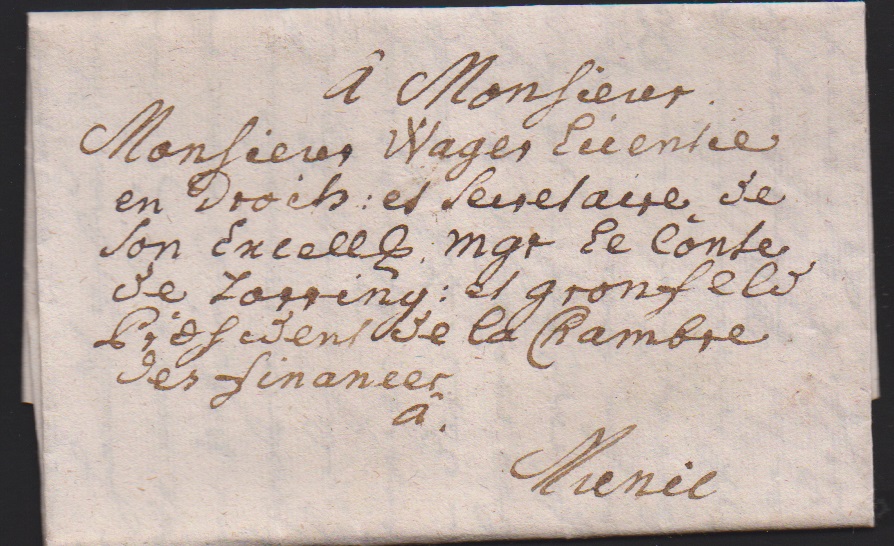 â Monsieur
Monsieur Wager Licentie
en Droith: et Secretaire de
son Excell. mgr le Cônte
de Torring: et gronsfeld
President de la Chambre
des finances
â.
Munic